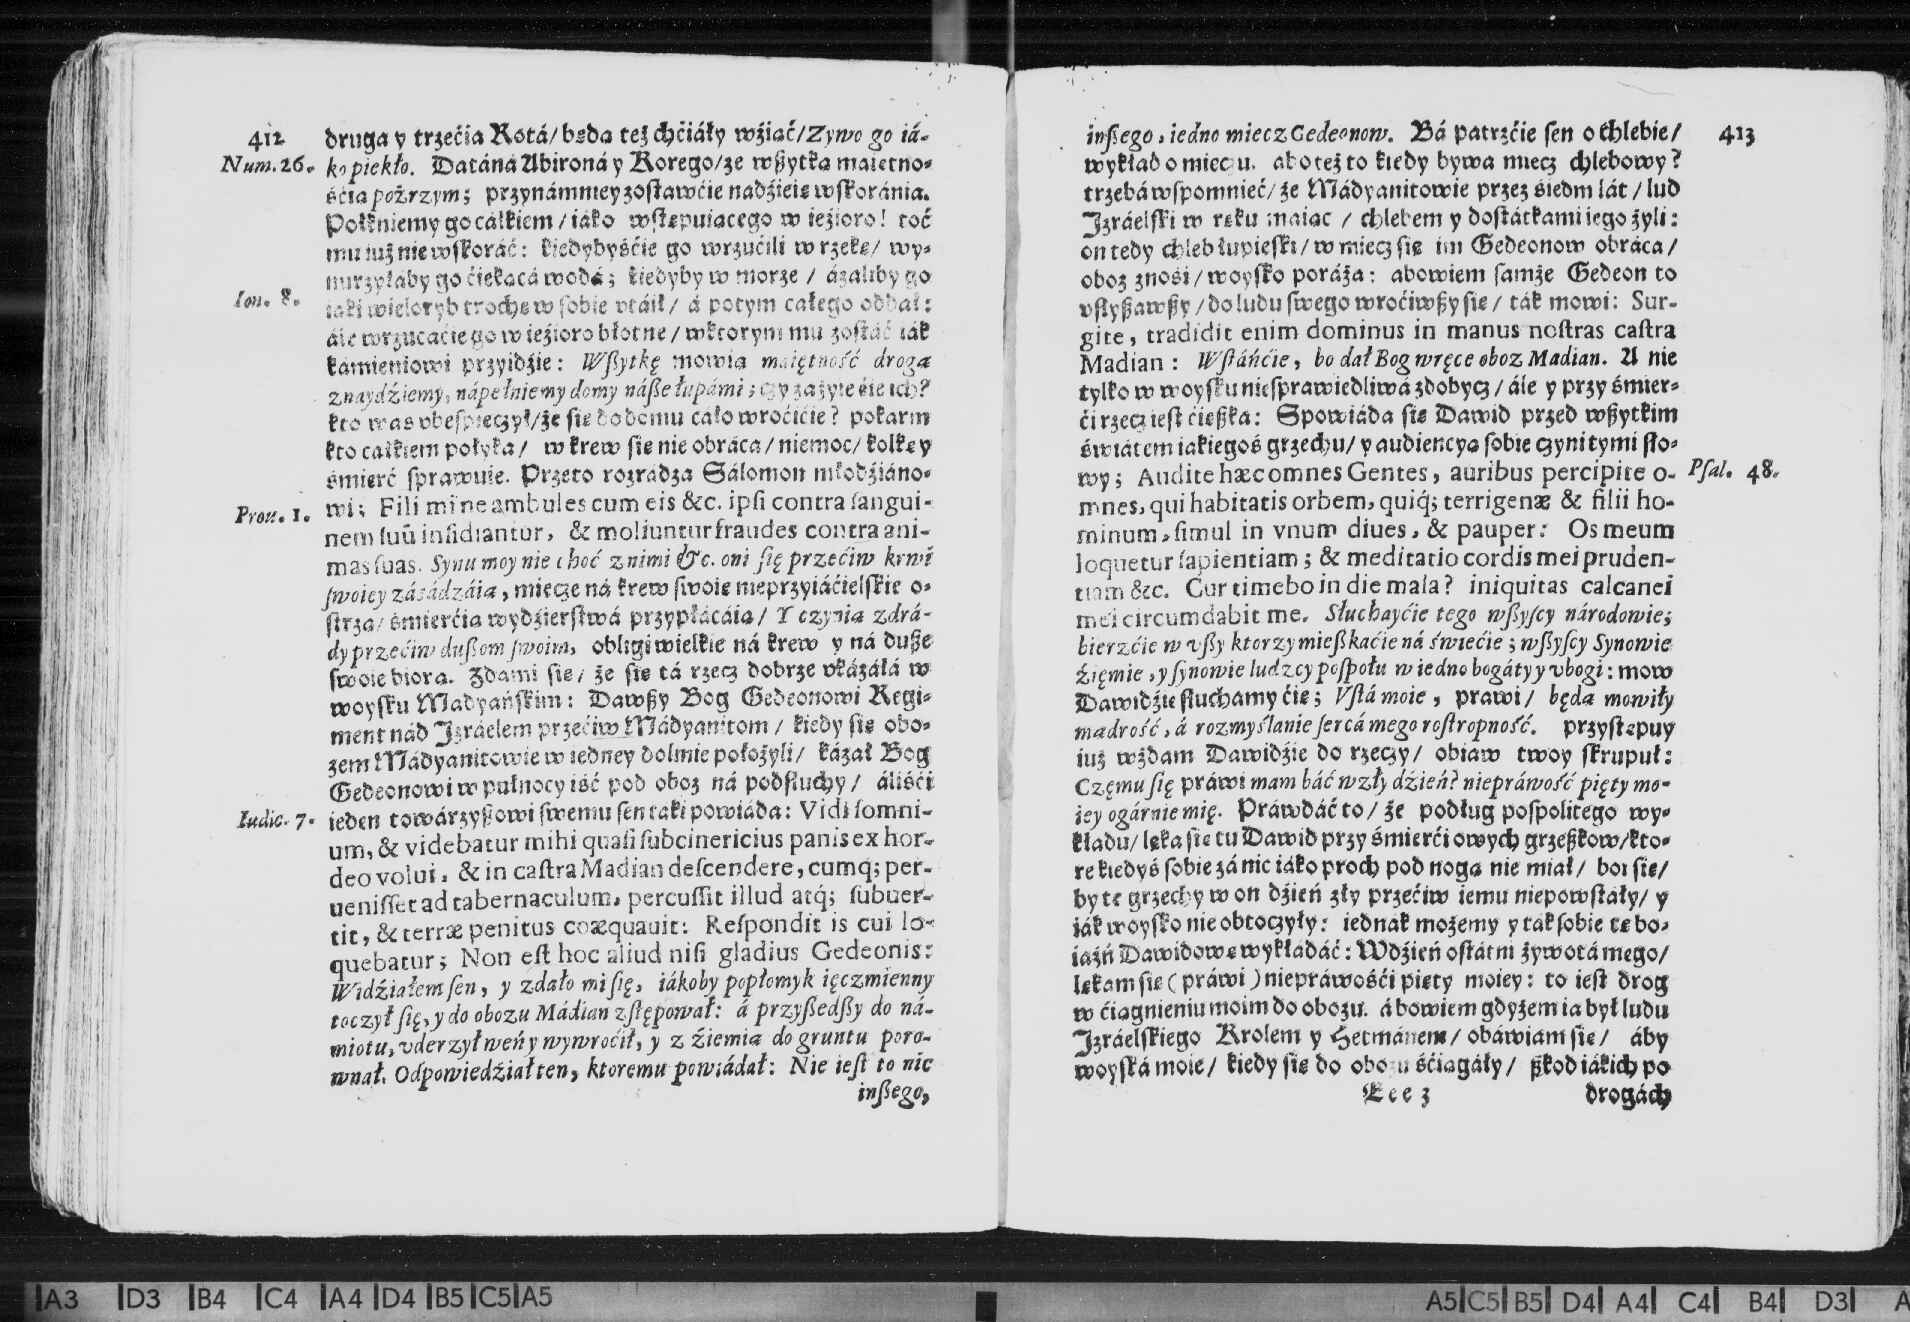 412
druga y trzećia Rotá/ będa też chćiáły wźiąć/ Zywo go iá-
Num. 26.
ko piekło. Datáná Abironá y Korego/ ze wßytką maiętno-
śćią pożrzym; przynámniey zostawćie nádźieię wskoránia.
Połkniemy go całkiem/ iáko wstępuiącego w ieźioro! toć
mu iuż nie wskoráć: kiedybyśćie go wrzućili w rzekę/ wy-
nurzyłáby go ćiekącá wodá; kiedyby w morze/ ázaliby go
Ion. 8.
iáki wieloryb trochę w sobie vtáił/ á potym całego oddał:
ále wrzucaćie go w ieźioro błotne/ w ktorym mu zostáć iák
kámieniowi przyidźie: Wßytkę mowią maiętność drogą
znaydźiemy, nápełniemy domy náße łupámi; czy záżyiećie ich?
kto was vbespieczył/ że się do domu cáło wroćićie? pokarm
kto całkiem połyka/ w krew się nie obráca/ niemoc/ kolkę y
śmierć sprawuie. Przeto rozradza Sálomon młodźiáno-
Prou. 1.
wi; Fili mi ne ambules cum eis &c. ipsi contra sangui-
nem suū insidiantur, & moliuntur fraudes contra ani-
mas suas. Synu moy nie choć z nimi &c. oni się przećiw krwi
swoiey zásádzáią, miecze ná krew swoię nieprzyiaćielskie o-
strzą/ śmierćią wydźierstwá przypłácáią/ Y czynią zdrá-
dy przećiw dußom swoim, obligi wielkie ná krew y ná dußę
swoię biorą. Zdami się/ że się tá rzecz dobrze vkázáłá w
woysku Mádyańskim: Dawßy Bog Gedeonowi Regi-
ment nád Izráelem przećiw Mádyanitom/ kiedy się obo-
zem Mádyanitowie w iedney dolinie położyli/ kázał Bog
Gedeonowi w pułnocy iść pod oboz ná podsłuchy/ áliśći
Iudic. 7.
ieden towárzyßowi swemu sen táki powiáda: Vidi somni-
um, & videbatur mihi quasi subcinericius panis ex hor-
deo volui, & in castra Madian descendere, cumq́; per-
uenisset ad tabernaculum, percussit illud atq́; subuer-
tit, & terræ penitus coæquauit: Respondit is cui lo-
quebatur; Non est hoc aliud nisi gladius Gedeonis:
Widźiałem sen, y zdało mi się, iákoby popłomyk ięczmienny
toczył się, y do obozu Mádian zstępował: á przyßedßy do ná-
miotu, vderzył weń y wywroćił, y z źiemią do gruntu poro-
wnał. Odpowiedźiał ten, ktoremu powiádał: Nie iest to nic
inßego,
413
inßego, iedno miecz Gedeonow. Bá patrzćie sen o chlebie/
wykład o mieczu. abo też to kiedy bywa miecz chlebowy?
trzebá wspomnieć/ że Mádyanitowie przez siedm lát/ lud
Izráelski w ręku máiąc/ chlebem y dostátkámi iego żyli:
on tedy chleb łupieski/ w miecz się im Gedeonow obráca/
oboz znosi/ woysko poráża: abowiem samże Gedeon to
vsłyßawßy/ do ludu swego wroćiwßy się/ ták mowi: Sur-
gite, tradidit enim dominus in manus nostras castra
Madian: Wstáńćie, bo dał Bog w ręce oboz Madian. A nie
tylko w woysku niesprawiedliwá zdobycz/ ále y przy śmier-
ći rzecz iest ćießka: Spowiáda się Dawid przed wßytkim
świátem iakiegoś grzechu/ y audiencyą sobie czyni tymi sło-
wy; Audite hæc omnes Gentes, auribus percipite o-
Psal. 48.
mnes, qui habitatis orbem, quiq́; terrigenæ & filii ho-
minum, simul in vnum diues, & pauper: Os meum
loquetur sapientiam; & meditatio cordis mei pruden-
tiam &c. Cur timebo in die mala? iniquitas calcanei
mei circumdabit me. Słuchayćie tego wßyscy národowie;
bierzćie w vßy ktorzy mießkaćie ná świećie; wßyscy Synowie
źięmie, y synowie ludzcy pospołu w iedno bogáty y vbogi: mow
Dawidźie słuchamy ćię; Vstá moie, prawi/ będą mowiły
mądrość, á rozmyślanie sercá mego rostropność. przystępuy
iuż wżdam Dawidźie do rzeczy/ obiaw twoy skrupuł:
Częmu się práwi mam báć w zły dźień? niepráwość pięty mo-
iey ogárnie mię. Práwdáć to/ że podług pospolitego wy-
kładu/ lęka się tu Dawid przy śmierći owych grzeßkow/ kto-
re kiedyś sobie zá nic iáko proch pod nogą nie miał/ boi się/
by te grzechy w on dźień zły przećiw iemu niepowstáły/ y
iák woysko nie obtoczyły: iednák możemy y ták sobie tę bo-
iaźń Dawidowę wykłádáć: W dźień ostátni żywotá mego/
lękam się (práwi) niepráwośći pięty moiey: to iest drog
w ćiągnieniu moim do obozu. ábowiem gdyżem ia był ludu
Izráelskiego Krolem y Hetmánem/ obáwiam się/ áby
woyská moie/ kiedy się do obozu śćiągáły/ ßkod iákich po
Eee 3
drogách